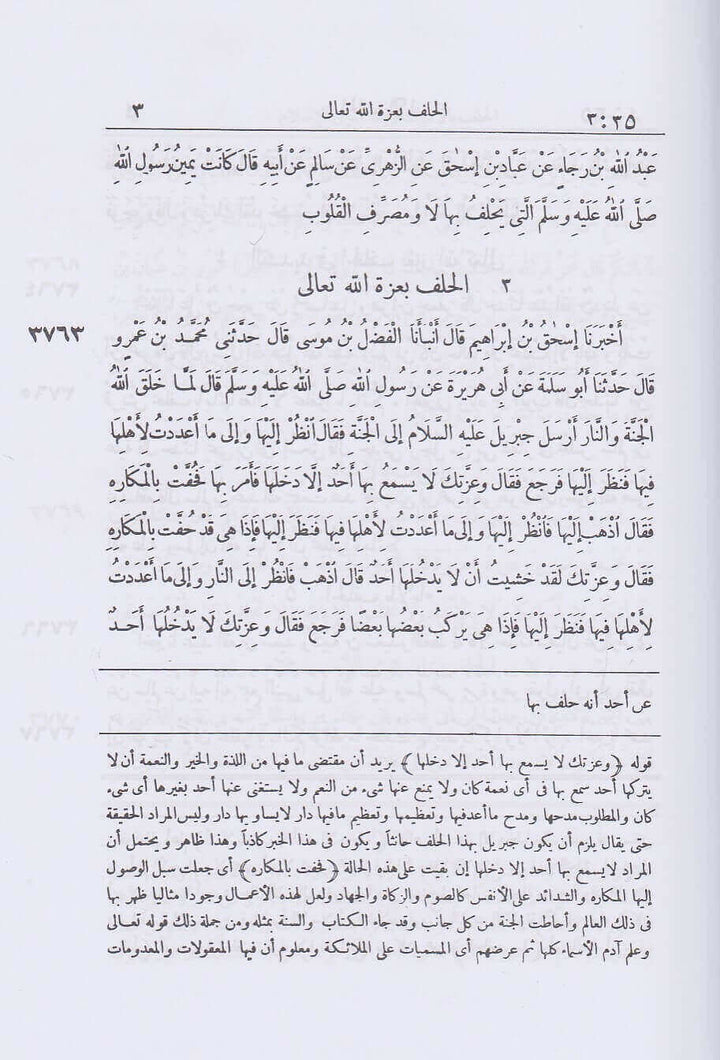 ٣:٣٥ الحلف بعزة الله تعالى ٣
عَبْدُ اللهِ بْنُ رَجَاءٍ عَنْ عَبَّادِ بْنِ إِسْحٰقَ عَنِ الزُّهْرِيِّ عَنْ سَالِمٍ عَنْ أَبِيهِ قَالَ كَانَتْ يَمِينُ رَسُولِ اللهِ
صَلَّى اللهُ عَلَيْهِ وَسَلَّمَ الَّتِي يَحْلِفُ بِهَا لَا وَمُصَرِّفِ الْقُلُوبِ
٢ الحلف بعزة الله تعالى
أَخْبَرَنَا إِسْحٰقُ بْنُ إِبْرَاهِيمَ قَالَ أَنْبَأَنَا الْفَضْلُ بْنُ مُوسَى قَالَ حَدَّثَنِي مُحَمَّدُ بْنُ عَمْرٍو ٣٧٦٣
قَالَ حَدَّثَنَا أَبُو سَلَمَةَ عَنْ أَبِي هُرَيْرَةَ عَنْ رَسُولِ اللهِ صَلَّى اللهُ عَلَيْهِ وَسَلَّمَ قَالَ لَمَّا خَلَقَ اللهُ
الْجَنَّةَ وَالنَّارَ أَرْسَلَ جِبْرِيلَ عَلَيْهِ السَّلَامُ إِلَى الْجَنَّةِ فَقَالَ انْظُرْ إِلَيْهَا وَإِلَى مَا أَعْدَدْتُ لِأَهْلِهَا
فِيهَا فَنَظَرَ إِلَيْهَا فَرَجَعَ فَقَالَ وَعِزَّتِكَ لَا يَسْمَعُ بِهَا أَحَدٌ إِلَّا دَخَلَهَا فَأَمَرَ بِهَا فَحُفَّتْ بِالْمَكَارِهِ
فَقَالَ اذْهَبْ إِلَيْهَا فَانْظُرْ إِلَيْهَا وَإِلَى مَا أَعْدَدْتُ لِأَهْلِهَا فِيهَا فَنَظَرَ إِلَيْهَا فَإِذَا هِيَ قَدْ حُفَّتْ بِالْمَكَارِهِ
فَقَالَ وَعِزَّتِكَ لَقَدْ خَشِيتُ أَنْ لَا يَدْخُلَهَا أَحَدٌ قَالَ اذْهَبْ فَانْظُرْ إِلَى النَّارِ وَإِلَى مَا أَعْدَدْتُ
لِأَهْلِهَا فِيهَا فَنَظَرَ إِلَيْهَا فَإِذَا هِيَ يَرْكَبُ بَعْضُهَا بَعْضًا فَرَجَعَ فَقَالَ وَعِزَّتِكَ لَا يَدْخُلُهَا أَحَدٌ
عن أحد أنه حلف بها
قوله ﴿وعزتك لا يسمع بها أحد إلا دخلها﴾ يريد أن مقتضى ما فيها من اللذة والخير والنعمة أن لا
يتركها أحد سمع بها فى أى نعمة كان ولا يمنع عنها شىء من النعم ولا يستغنى عنها أحد بغيرها أى شىء
كان والمطلوب مدحها ومدح ما أعد فيها وتعظيمها وتعظيم ما فيها دار لا يساويها دار وليس المراد الحقيقة
حتى يقال يلزم أن يكون جبريل بهذا الحلف حانثاً ويكون فى هذا الخبر كاذباً وهذا ظاهر ويحتمل أن
المراد لا يسمع بها أحد إلا دخلها إن بقيت على هذه الحالة ﴿فحفت بالمكاره﴾ أى جعلت سبل الوصول
إليها المكاره والشدائد على الأنفس كالصوم والزكاة والجهاد ولعل لهذه الأعمال وجودا مثاليا ظهر بها
فى ذلك العالم وأحاطت الجنة من كل جانب وقد جاء الكتاب والسنة بمثله ومن جملة ذلك قوله تعالى
وعلم آدم الأسماء كلها ثم عرضهم أى المسميات على الملائكة ومعلوم أن فيها المعقولات والمعدومات